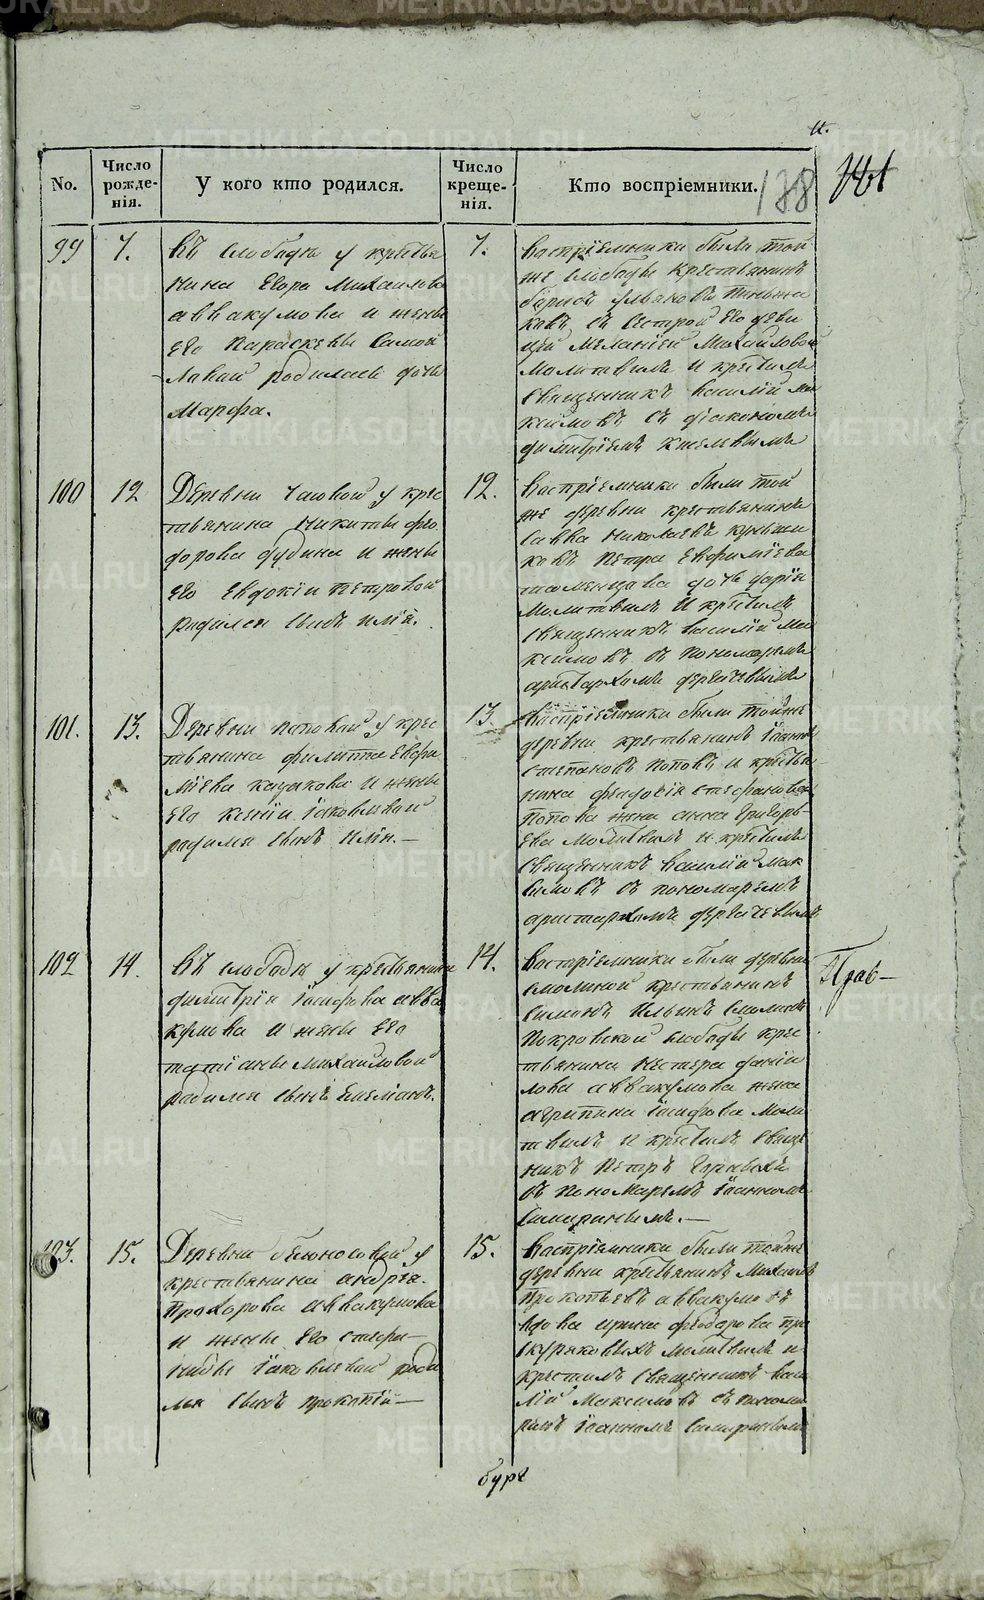 138
No.
Число рожде-нія.
У кого кто родился.
Число креще-нія.
Кто воспріемники.
99
7.
Въ слободѣ у крестья
нина Егора Михаилова
аввакумова и жены
его Параскевы Самой
ловой родилась дочь
Марфа.
7.
Воспріемники были той
же слободы крестьянинъ
съ сестрой его деви
цей Меланіей Михайловой
молитвилъ и крестилъ
священникъ василій ма
ксимовъ съ діакономъ
димитріемъ
100
12
Деревни у крес
тьянина никиты фео
дорова дудина и жены
его Евдокіи петровой
родился сынъ илія.
12.
Воспріемники были той
же деревни крестьянинъ
Савва Николаевъ
петра Евфиміева
дочь дарія
молитвилъ и крестилъ
священникъ василій ма
ксимовъ съ пономаремъ
аристархомъ
101.
13.
Деревни поповой у крес
тьянина филиппа Евфи
міева казакова и жены
его ксеніи іаковлевой
родился сынъ илія.—
13.
Воспріемники были тойже
деревни крестьянинъ іоаннъ
степановъ поповъ и крестья
нина феодосія стефанова
попова жена анна григорь
ева молитвилъ и крестилъ
священникъ василій мак
симовъ съ пономаремъ
аристархомъ
102
14.
Въ слободѣ у крестьянина
димитрія іосифова авва
кумова и жены его
татіаны михаиловой
родился сынъ
14.
Воспріемники были деревни
смолиной крестьянинъ
Симонъ Ильинъ смолинъ
покровской слободы крес
тьянина нестера даніи
лова аввакумова жена
агрипина іосифова моли
твилъ и крестилъ священ
никъ Петръ
съ пономаремъ іоанномъ
—
103.
15.
Деревни у
крестьянина андрея
прохорова аввакумова
и жены его стефа—
ниды іаковлевой роди
лся сынъ прокопій—
15.
Воспріемники были тойже
деревни крестьянинъ Михаилъ
прокопьевъ аввакумовъ
вдова ирина феодорова про
скуряковыхъ молитвилъ и
крестилъ священникъ васи
лій Максимовъ съ понома
ремъ іоанномъ